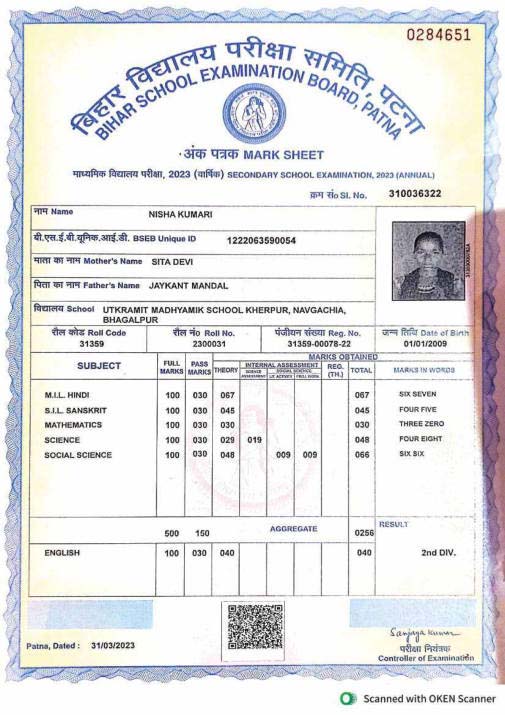 0284651
बिहार विद्यालय परीक्षा समिति, पटना
BIHAR SCHOOL EXAMINATION BOARD, PATNA
अंक पत्रक MARK SHEET
माध्यमिक विद्यालय परीक्षा, 2023 (वार्षिक) SECONDARY SCHOOL EXAMINATION, 2023 (ANNUAL)
क्रम सं० Sl. No. 310036322
नाम Name NISHA KUMARI
बी.एस.ई.बी.यूनिक.आई.डी. BSEB Unique ID 1222063590054
माता का नाम Mother's Name SITA DEVI
पिता का नाम Father's Name JAYKANT MANDAL
विद्यालय School UTKRAMIT MADHYAMIK SCHOOL KHERPUR, NAVGACHIA,
BHAGALPUR
रौल कोड Roll Code रौल नं० Roll No. पंजीयन संख्या Reg. No. जन्म तिथि Date of Birth
31359 2300031 31359-00078-22 01/01/2009
SUBJECT FULL MARKS PASS MARKS MARKS OBTAINED
THEORY INTERNAL ASSESSMENT REG. (TH.) TOTAL MARKS IN WORDS
SCIENCE SOCIAL SCIENCE
ASSESSMENT LIT. ACTIVITY PROJ. WORK
M.I.L. HINDI 100 030 067 067 SIX SEVEN
S.I.L. SANSKRIT 100 030 045 045 FOUR FIVE
MATHEMATICS 100 030 030 030 THREE ZERO
SCIENCE 100 030 029 019 048 FOUR EIGHT
SOCIAL SCIENCE 100 030 048 009 009 066 SIX SIX
500 150 AGGREGATE 0256 RESULT
ENGLISH 100 030 040 040 2nd DIV.
Sanjaya Kumar
Patna, Dated : 31/03/2023 परीक्षा नियंत्रक
Controller of Examination
Scanned with OKEN Scanner